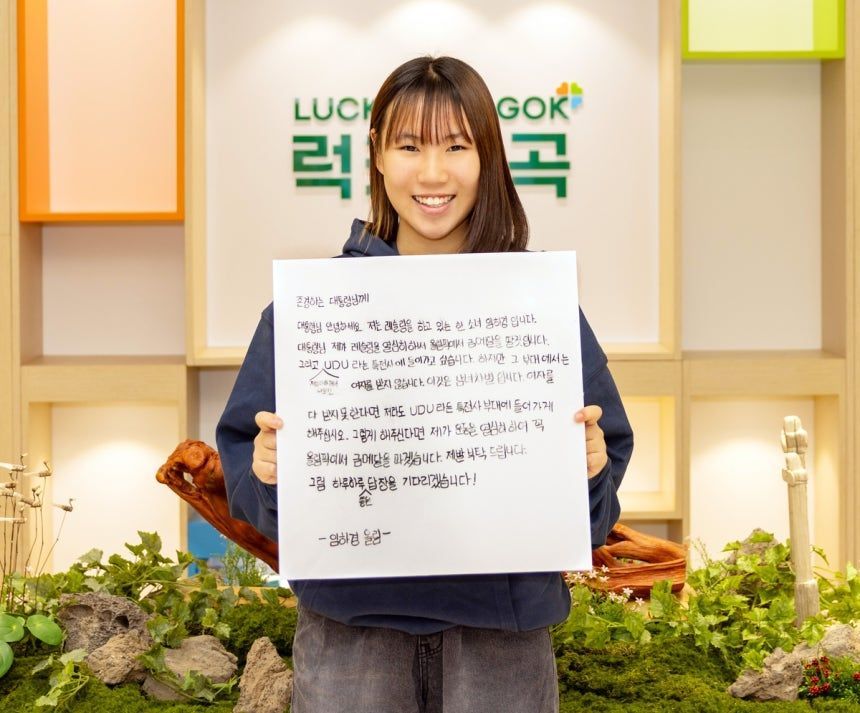 LUCK GOK
럭 곡
존경하는 대통령님께
대통령님 안녕하세요. 저는 레슬링을 하고 있는 한 소녀 임하경 입니다.
대통령님 제가 레슬링을 열심히 하서 올림픽에서 금메달을 딸것입니다.
그리고 UDU 라는 특전사에 들어가고 싶습니다. 하지만 그 부대에서는
여자를 받지 않습니다. 이것은 남녀차별 입니다. 여자를
다 받지 못한다면 저라도 UDU 라는 특전사 부대에 들어가게
해주십시오. 그렇게 해주신다면 제가 운동을 열심히 하여 꼭
올림픽에서 금메달을 따겠습니다. 제발 부탁 드립니다.
그럼 하루하루 답장을 기다리겠습니다!
좋은
- 임하경 올림 -